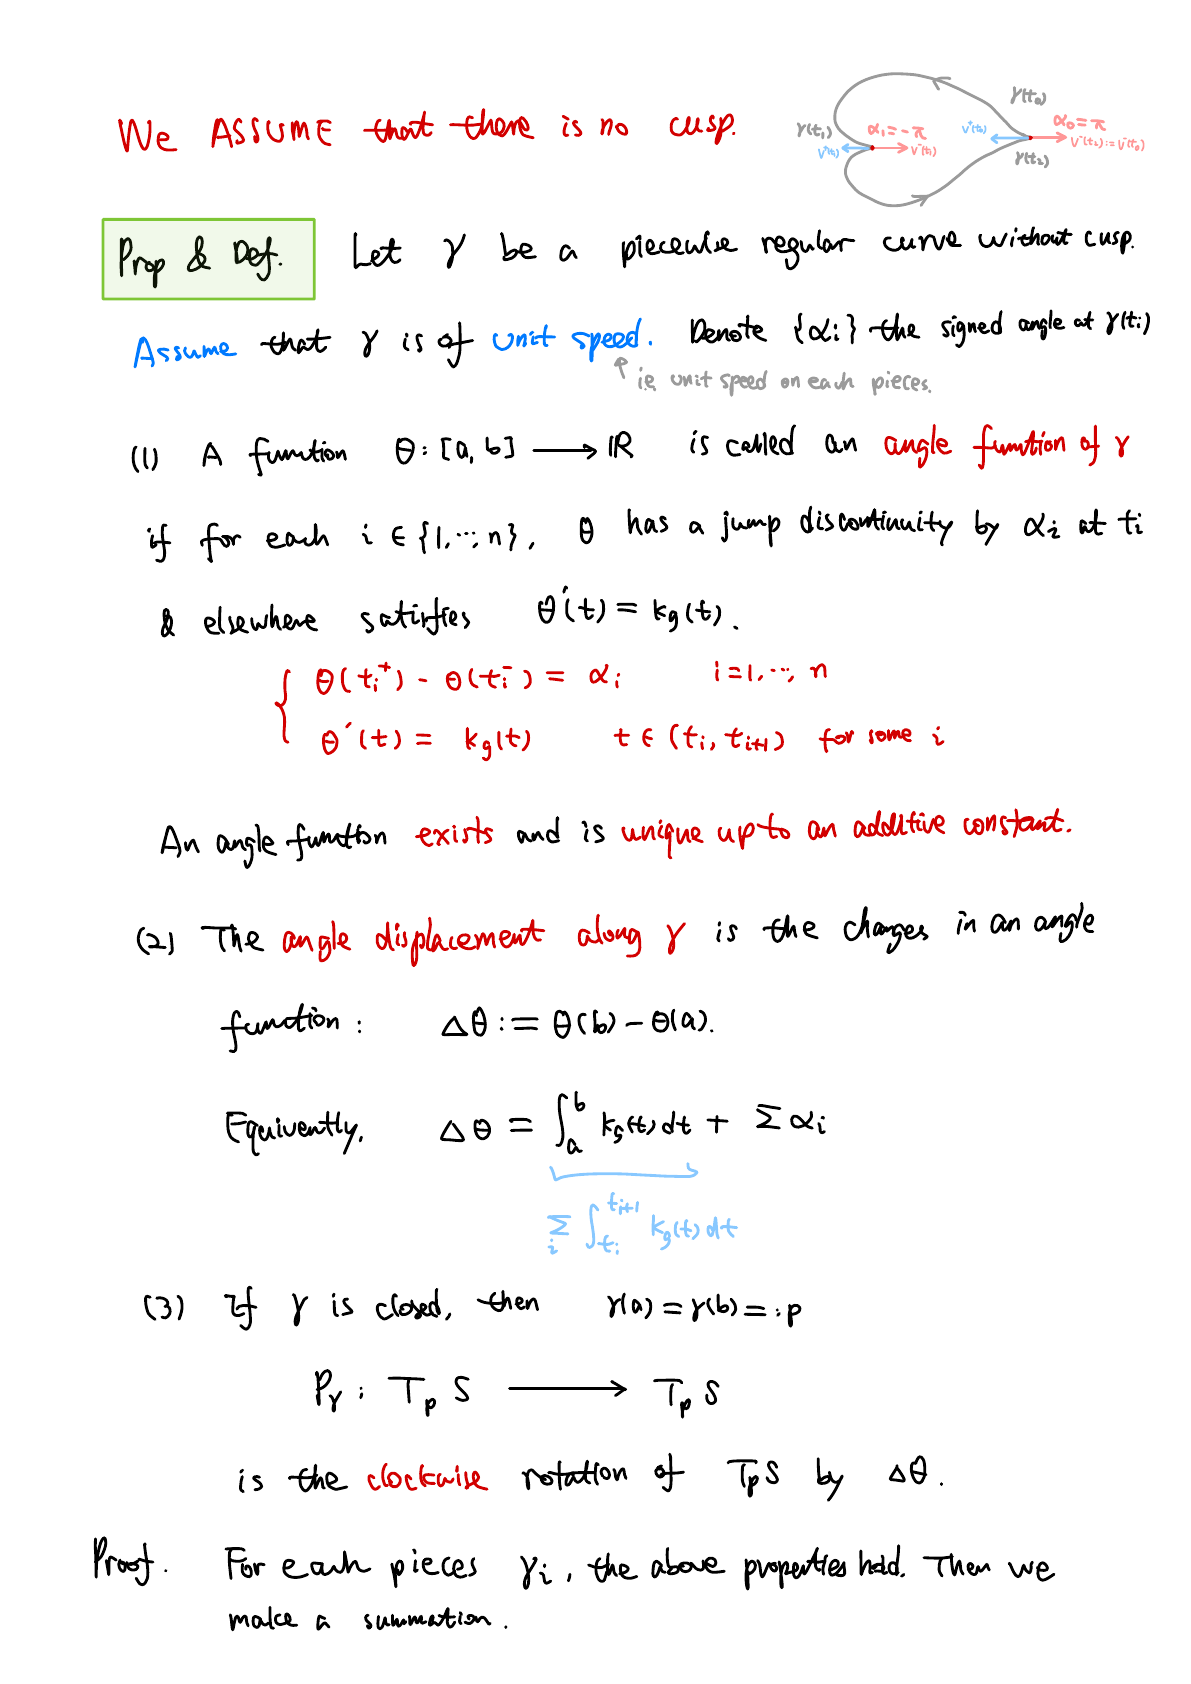 We ASSUME that there is no cusp.
γ(t₀)
γ(t₁) α₁=-π V⁺(t₀) α₀=π
V⁺(t₁) V⁻(t₁) V⁻(t₂):=V⁻(t₀)
γ(t₂)
Prop & Def. Let γ be a piecewise regular curve without cusp.
Assume that γ is of unit speed. Denote {αi} the signed angle at γ(ti)
ie unit speed on each pieces.
(1) A function θ: [a, b] ⟶ ℝ is called an angle function of γ
if for each i ∈ {1, ..., n}, θ has a jump discontinuity by αi at ti
& elsewhere satisfies θ′(t) = kg(t).
{ θ(ti⁺) - θ(ti⁻) = αi i=1, ..., n
θ′(t) = kg(t) t ∈ (ti, ti+1) for some i
An angle function exists and is unique up to an additive constant.
(2) The angle displacement along γ is the changes in an angle
function: Δθ := θ(b) - θ(a).
Equivently, Δθ = ∫ₐᵇ kg(t) dt + Σ αi
Σᵢ ∫_{ti}^{ti+1} kg(t) dt
(3) If γ is closed, then γ(a) = γ(b) =: p
Pγ : TpS ⟶ TpS
is the clockwise rotation of TpS by Δθ.
Proof. For each pieces γi, the above properties hold. Then we
make a summation.